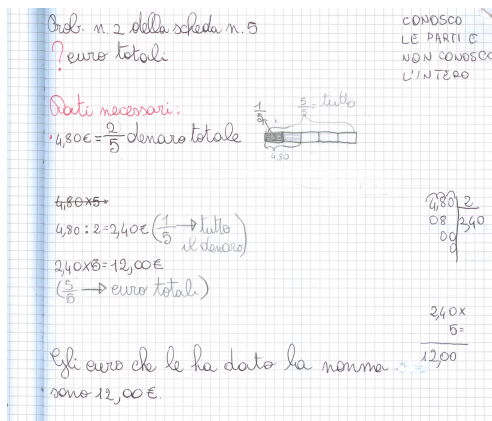 Prob. n. 2 della scheda n. 5
? euro totali
CONOSCO
LE PARTI E
NON CONOSCO
L'INTERO
Dati necessari:
4,80€ = 2/5 denaro totale
1/5
5/5 = tutto
4,80
4,80x5=
4,80 : 2 = 2,40€ (1/5 → tutto
il denaro)
2,40x5=12,00€
(5/5 → euro totali)
4,80 2
08 2,40
00
0
2,40x
5=
12,00
Gli euro che le ha dato la nonna
sono 12,00€.